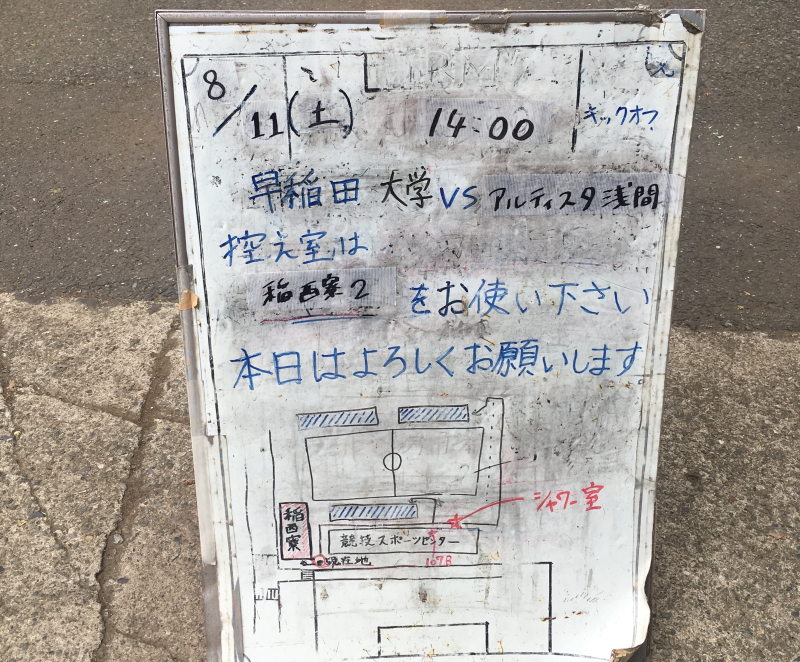 8/11(土) 14:00 キックオフ
早稲田大学 VS アルティスタ浅間
控え室は
稲西寮2 をお使い下さい
本日はよろしくお願いします。
シャワー室
稲西寮
競技スポーツセンター
現在地
107B